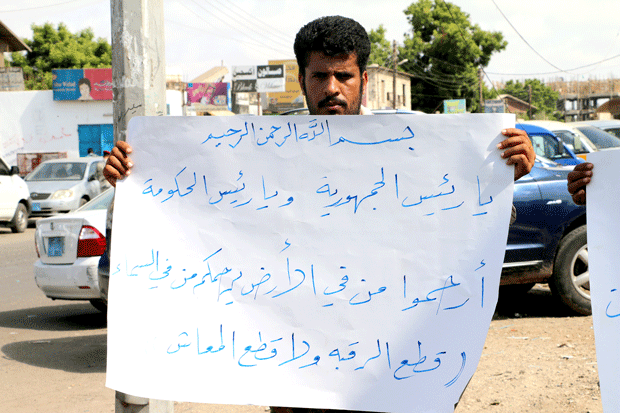 بسم الله الرحمن الرحيم
يا رئيس الجمهورية ويا رئيس الحكومة
أرحموا من في الأرض يرحمكم من في السماء
(قطع الرقبه ولا قطع المعاش